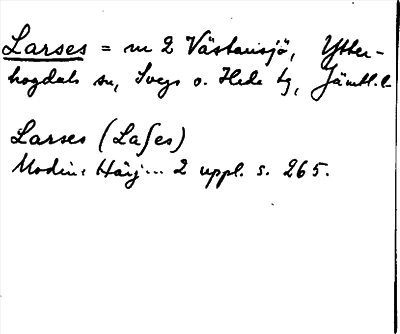 Larses = nr 2 Västansjö, Ytter-
hogdals sn, Svegs o. Hede tg, Jämtl. l.
Larses (Laſes)
Modin: Härj... 2 uppl. s. 265.